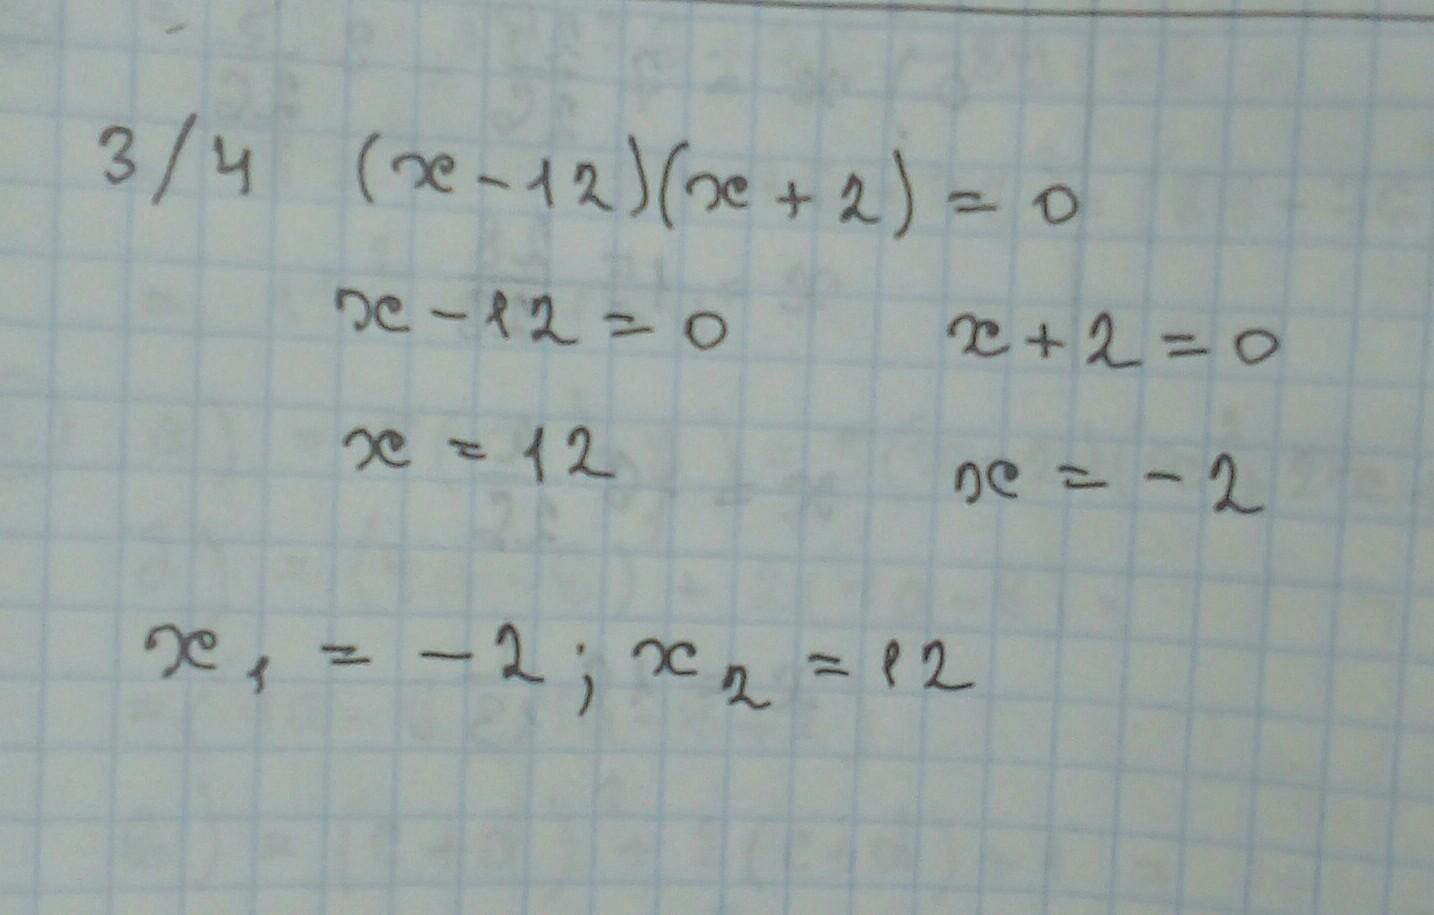 3/4 (x-12)(x+2)=0
x-12=0 x+2=0
x=12 x=-2
x₁=-2; x₂=12